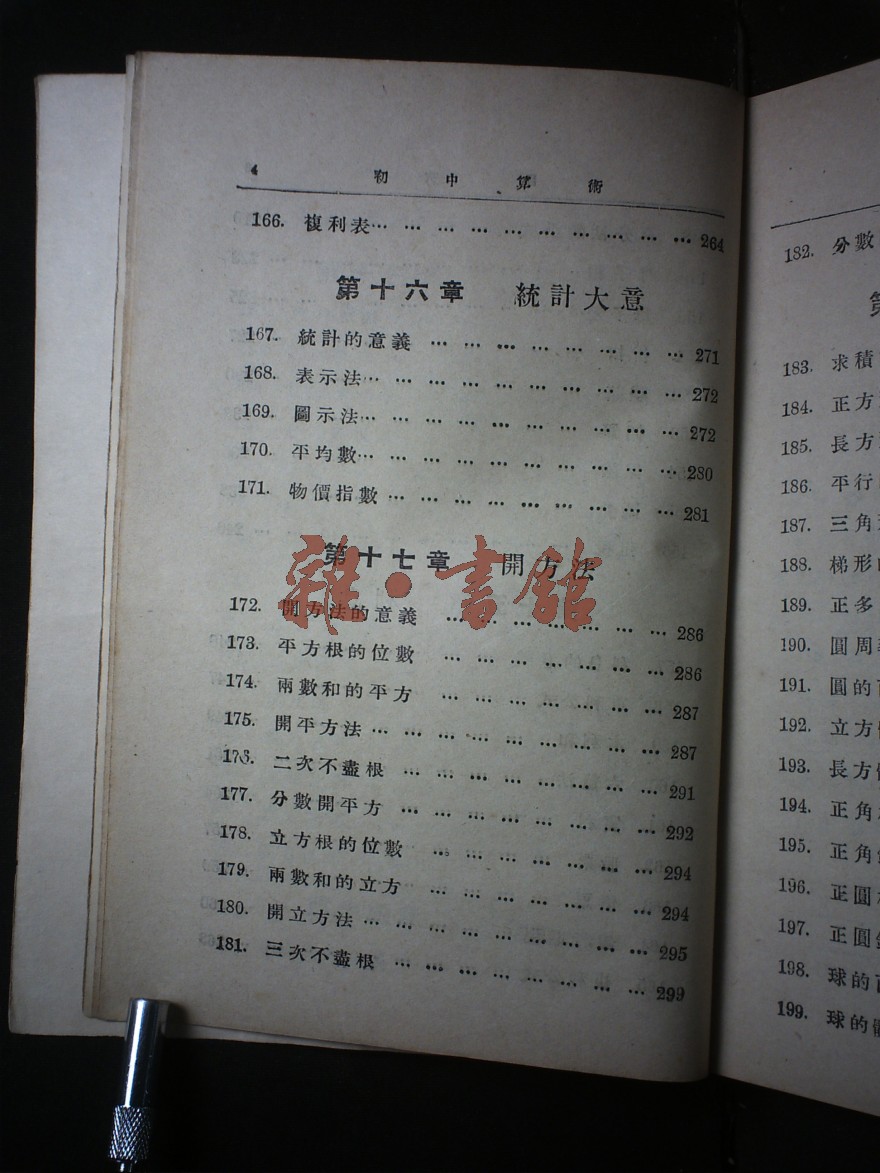 4 初中算術
166. 複利表… … … … … … … … … … … 264
第十六章 統計大意
167. 統計的意義 … … … … … … … … … 271
168. 表示法… … … … … … … … … … … 272
169. 圖示法… … … … … … … … … … … 272
170. 平均數… … … … … … … … … … … 280
171. 物價指數… … … … … … … … … … 281
第十七章 開方法
172. 開方法的意義 … … … … … … … … 286
173. 平方根的位數 … … … … … … … … 286
174. 兩數和的平方 … … … … … … … … 287
175. 開平方法… … … … … … … … … … 287
176. 二次不盡根 … … … … … … … … … 291
177. 分數開平方 … … … … … … … … … 292
178. 立方根的位數 … … … … … … … … 294
179. 兩數和的立方 … … … … … … … … 294
180. 開立方法… … … … … … … … … … 295
181. 三次不盡根 … … … … … … … … … 299
雜·書館
182. 分數
183. 求積
184. 正方
185. 長方
186. 平行
187. 三角
188. 梯形
189. 正多
190. 圓周
191. 圓的
192. 立方
193. 長方
194. 正角
195. 正角
196. 正圓
197. 正圓
198. 球的
199. 球的